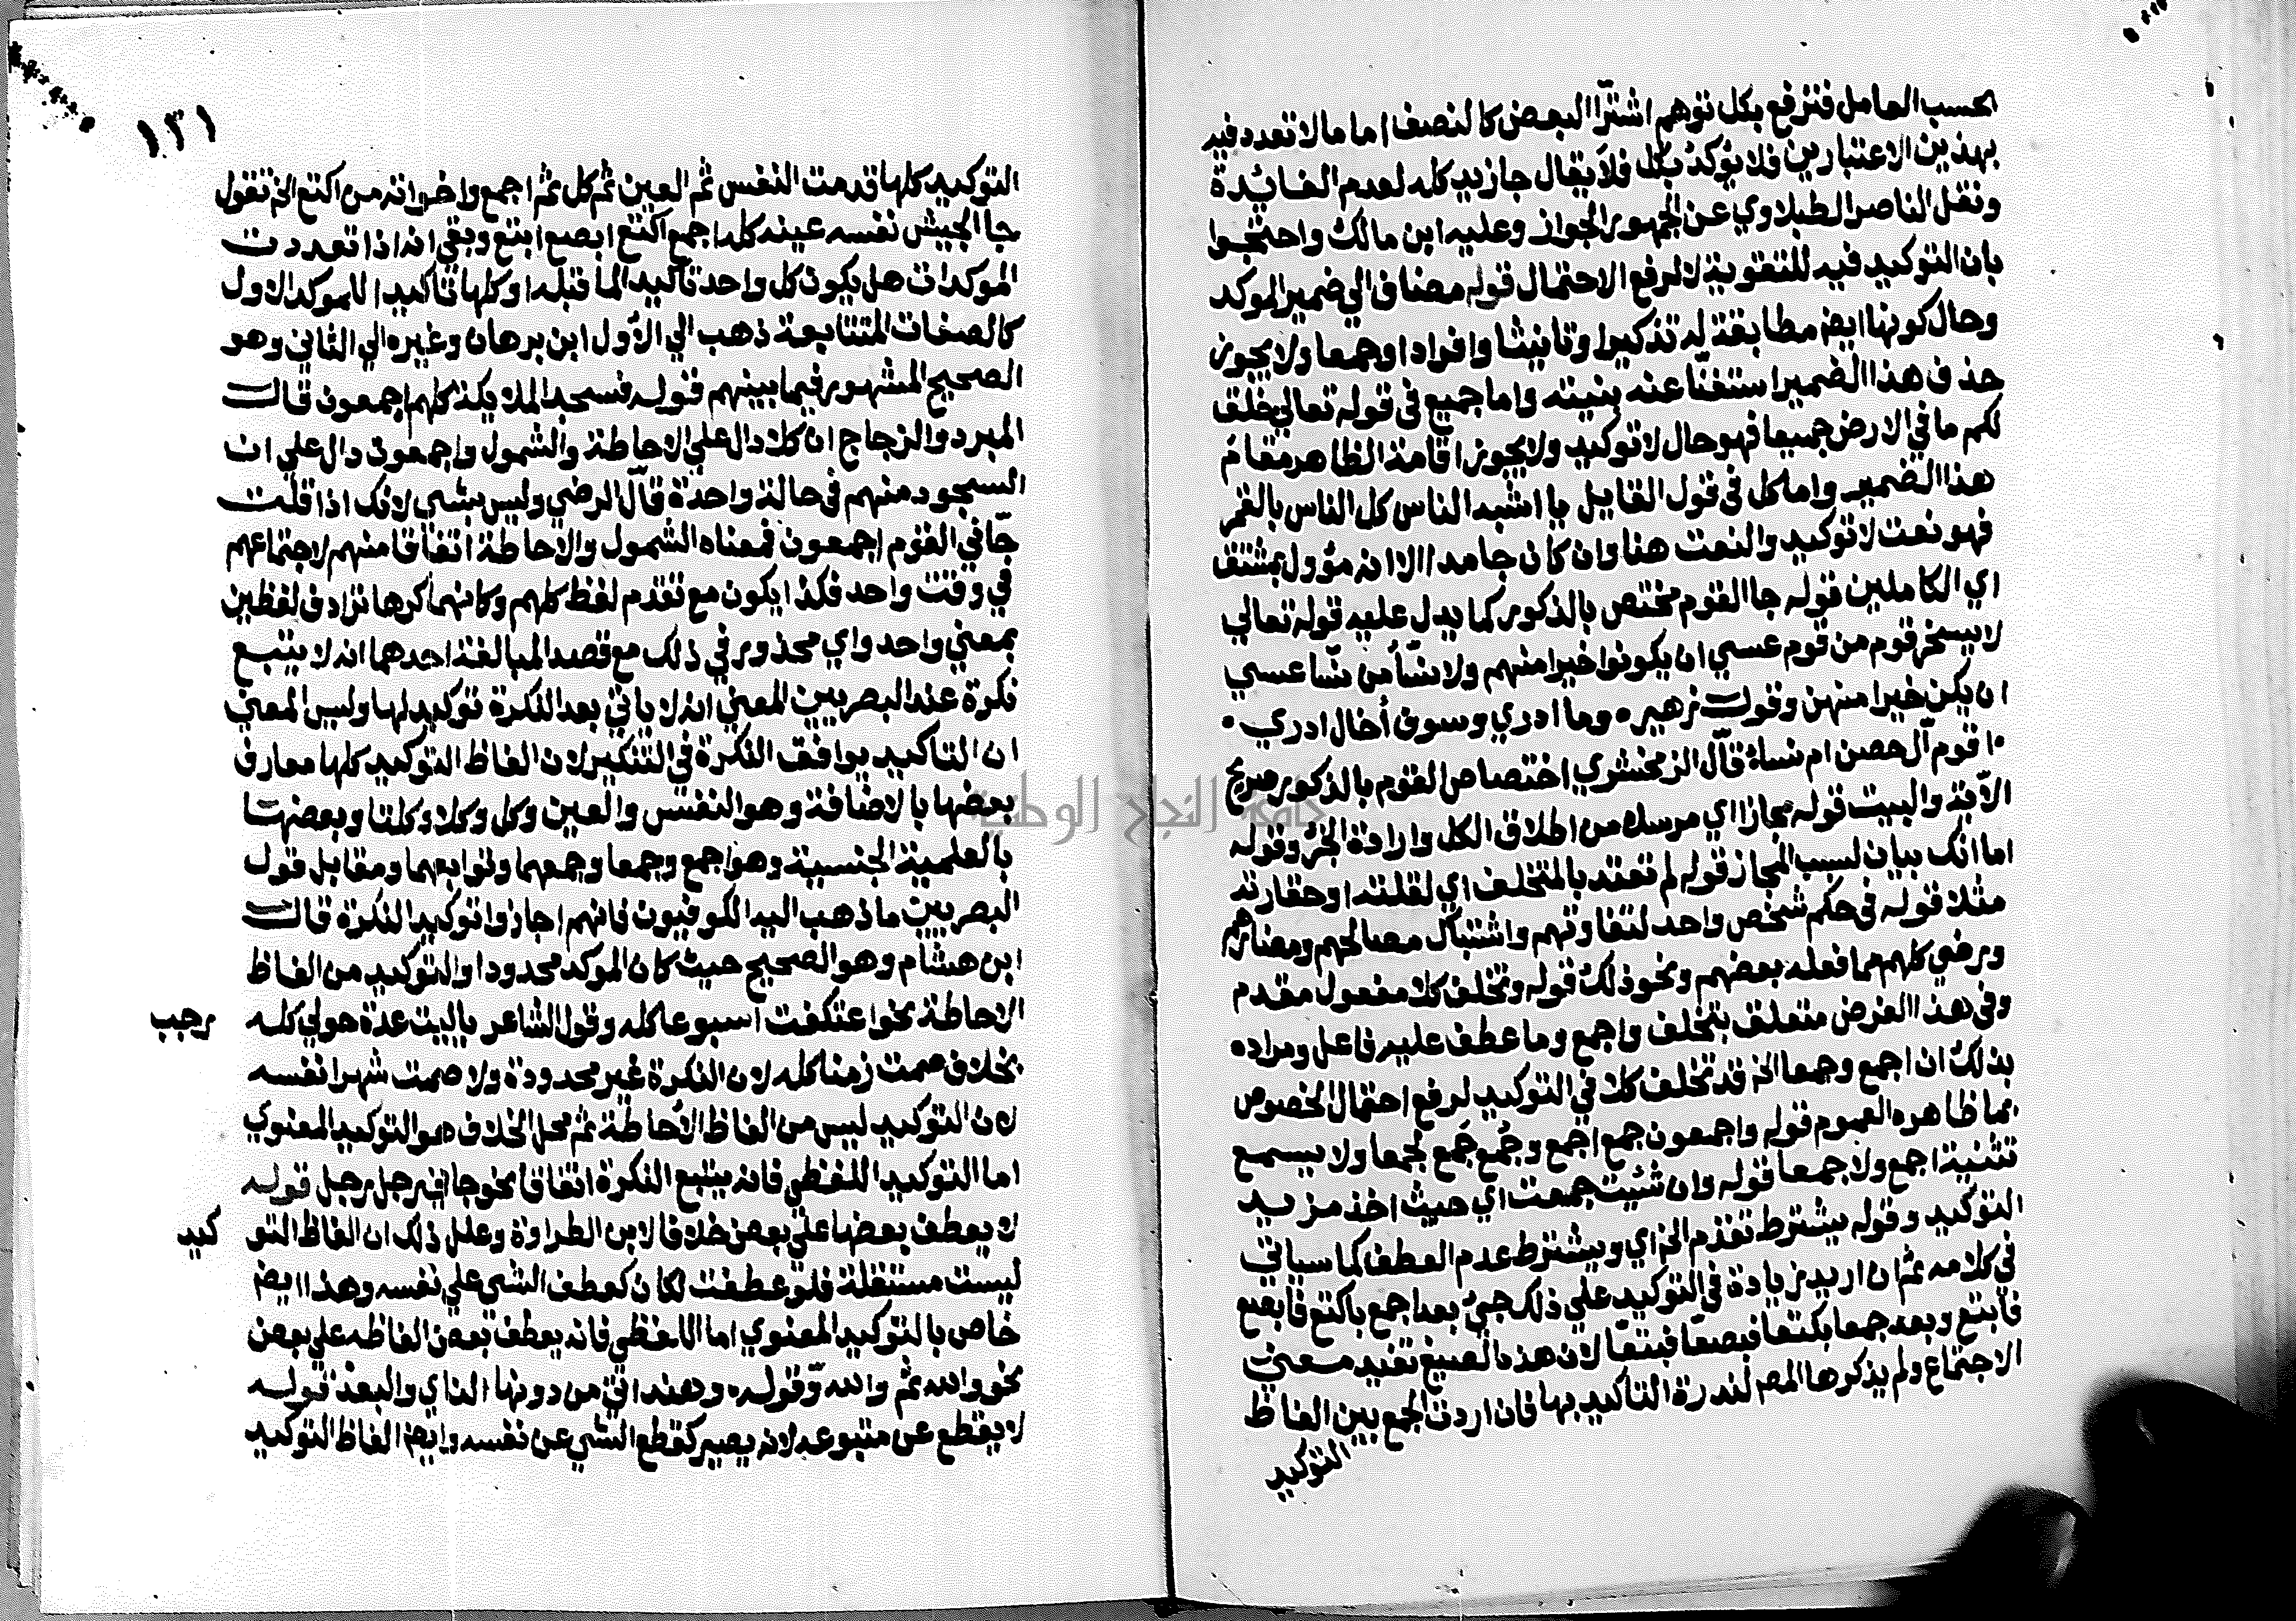 بحسب العامل فنرفع بكل توهم اشترا البعض كالنصف اما ما لا تعدد فيه
بهذين الاعتبارين فلا يؤكد بكل فلا يقال جا زيد كله لعدم الفائدة
ونقل الناصر الطبلاوي عن الجمهور الجواز وعليه ابن مالك واحتجوا
بان التوكيد فيه للتقوية لا لرفع الاحتمال قوله مضافا الي ضمير الموكد
وحال كونها ايضا مطابقة له تذكيرا وتانيثا وافرادا وجمعا ولا يجوز
حذف هذا الضمير استغناً عنه بنيته واما جميع في قوله تعالي خلق
لكم ما في الارض جميعا فهو حال لا توكيد ولا يجوز اقامة الظاهر مقام
هذا الضمير واما كل في قول القايل يا اشبه الناس كل الناس بالقمر
فهو نعت لا توكيد والنعت هنا وان كان جامدا الا انه مؤول بمشتق
اي الكاملين قوله جا القوم مختص بالذكور كما يدل عليه قوله تعالي
لا يسخر قوم من قوم عسي ان يكونوا خيرا منهم ولا نسآ من نسآ عسي
ان يكن خيرا منهن وقول زهير ٠ وما ادري وسوف أخال ادري ٠
٠ اقوم آل حصن ام نساء قال الزمخشري اختصاص القوم بالذكور صريح
الآية والبيت قوله مجازا اي مرسلا من اطلاق الكل وارادة الجزء وقوله
اما انك بيان لسبب المجاز قوله لم تعتد بالمتخلف اي لقلته او حقارته
مثلا قوله في حكم شخص واحد لتعاونهم واشتباك مصالحهم ومضارهم
ورضي كلهم مما فعله بعضهم ونحو ذلك قوله وتخلف كلا مفعول مقدم
وفي هذا الغرض متعلق بتخلف واجمع وما عطف عليه فاعل ومراده
بذلك ان اجمع وجمعا الخ قد تخلف كلا في التوكيد لرفع احتمال الخصوص
بما ظاهره العموم قوله واجمعون جمع اجمع وجُمَع جَمْع لجمعا ولا يسمع
تثنية اجمع ولا جمعا قوله وان شئت جمعت اي حيث اخذ مزيد
التوكيد وقوله بيشترط تقدم الخ اي ويشترط عدم العطف كما سياتي
في كلامه ثم ان اريد زيادة في التوكيد علي ذلك جيء بعد اجمع باكتع فابصع
فابتع وبعد جمعا بكتعا فبصعا فبتعا لان هذه الصيغ تفيد معني
الاجتماع ولم يذكرها المص لندرة التاكيد بها فان اردت الجمع بين الفاظ
التوكيد
١٣١
التوكيد كلها قدمت النفس ثم العين ثم كل ثم اجمع واخواته من اكتع الخ تقول
جا الجيش نفسه عينه كله اجمع اكتع ابصع ابتع وبقي انه اذا تعددت
الموكدات هل يكون كل واحد تاكيد الما قبله او كلها تاكيدا للموكد الاول
كالصفات المتتابعة ذهب الي الاول ابن برهان وغيره الي الثاني وهو
الصحيح المشهور فيما بينهم قوله فسجد الملايكة كلهم اجمعون قال
المبرد والزجاج ان كلا دال علي الاحاطة والشمول واجمعون دال علي ان
السجود منهم في حالة واحدة قال الرضي وليس بشي لانك اذا قلت
جآني القوم اجمعون فمعناه الشمول والاحاطة اتفاقا منهم لا اجتماعهم
في وقت واحد فكذا يكون مع تقدم لفظ كلهم وكانهما كرها ترادف لفظين
بمعني واحد واي محذور في ذلك مع قصد المبالغة احدهما انه لا يتبع
نكرة عند البصريين المعني انه لا ياتي بعد النكرة توكيد لها وليس المعني
ان التاكيد يوافق النكرة في التنكير لان الفاظ التوكيد كلها معارف
بعضها بالاضافة وهو النفس والعين وكل وكلا وكلتا وبعضها
بالعلمية الجنسية وهو اجمع وجمعا وجمعهما وتوابعهما ومقابل قول
البصريين ما ذهب اليه الكوفيون فانهم اجازوا توكيد النكرة قال
ابن هشام وهو الصحيح حيث كان الموكد محدودا والتوكيد من الفاظ
الاحاطة نحو اعتكفت اسبوعا كله وقول الشاعر ياليت عدة حولي كله رجب
بخلاف صمت زمنا كله لان النكرة غير محدودة ولا صمت شهرا نفسه
لان التوكيد ليس من الفاظ الاحاطة ثم محل الخلاف هو التوكيد المعنوي
اما التوكيد اللفظي فانه يتبع النكرة اتفاقا نحو جاني رجل رجل قوله
لا يعطف بعضها علي بعض خلافا لابن الطراوة وعلل ذلك ان الفاظ التو كيد
ليست مستقلة فلو عطفت لكان كعطف الشي علي نفسه وهذا ايضا
خاص بالتوكيد المعنوي اما اللفظي فانه يعطف بعض الفاظه علي بعض
نحو والله ثم والله وقوله ٠ وهند اتي من دونها الناي والبعد قوله
لا يقطع عن متبوعه لانه يصير كقطع الشي عن نفسه وايضا الفاظ التوكيد
جامعة النجاح الوطنية